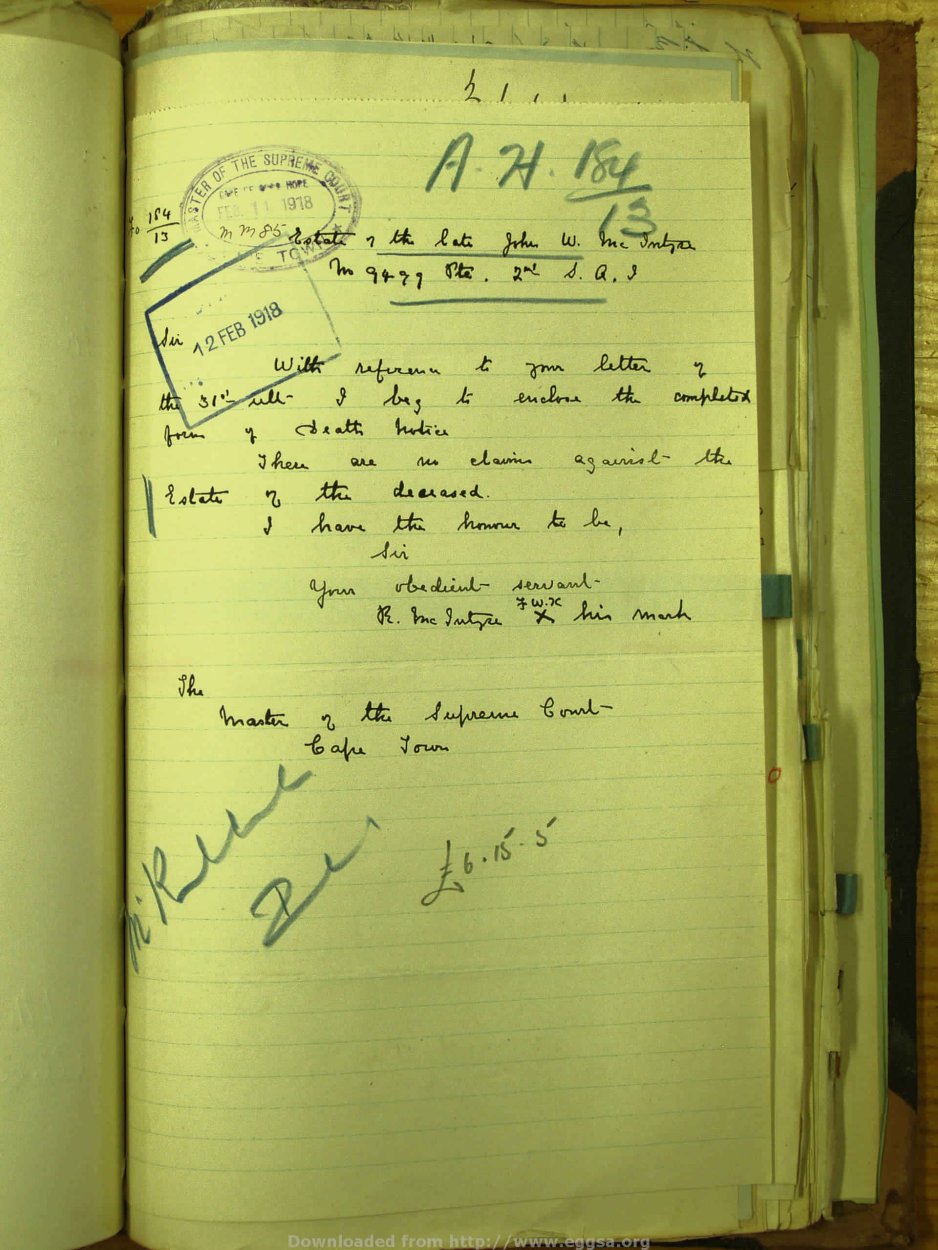 A. H. 184
13
MASTER OF THE SUPREME COURT
CAPE OF GOOD HOPE
FEB 11 1918
CAPE TOWN
184
13
Estate of the late John W. McIntyre
No 9499 Pte. 2nd S. A. I
12 FEB 1918
Sir
With reference to your letter of
the 31st ult I beg to enclose the completed
form of Death Notice
There are no claims against the
Estate of the deceased.
I have the honour to be,
Sir
Your obedient servant
R. McIntyre X his mark
The
Master of the Supreme Court
Cape Town
£6.15.5
Downloaded from http://www.eggsa.org